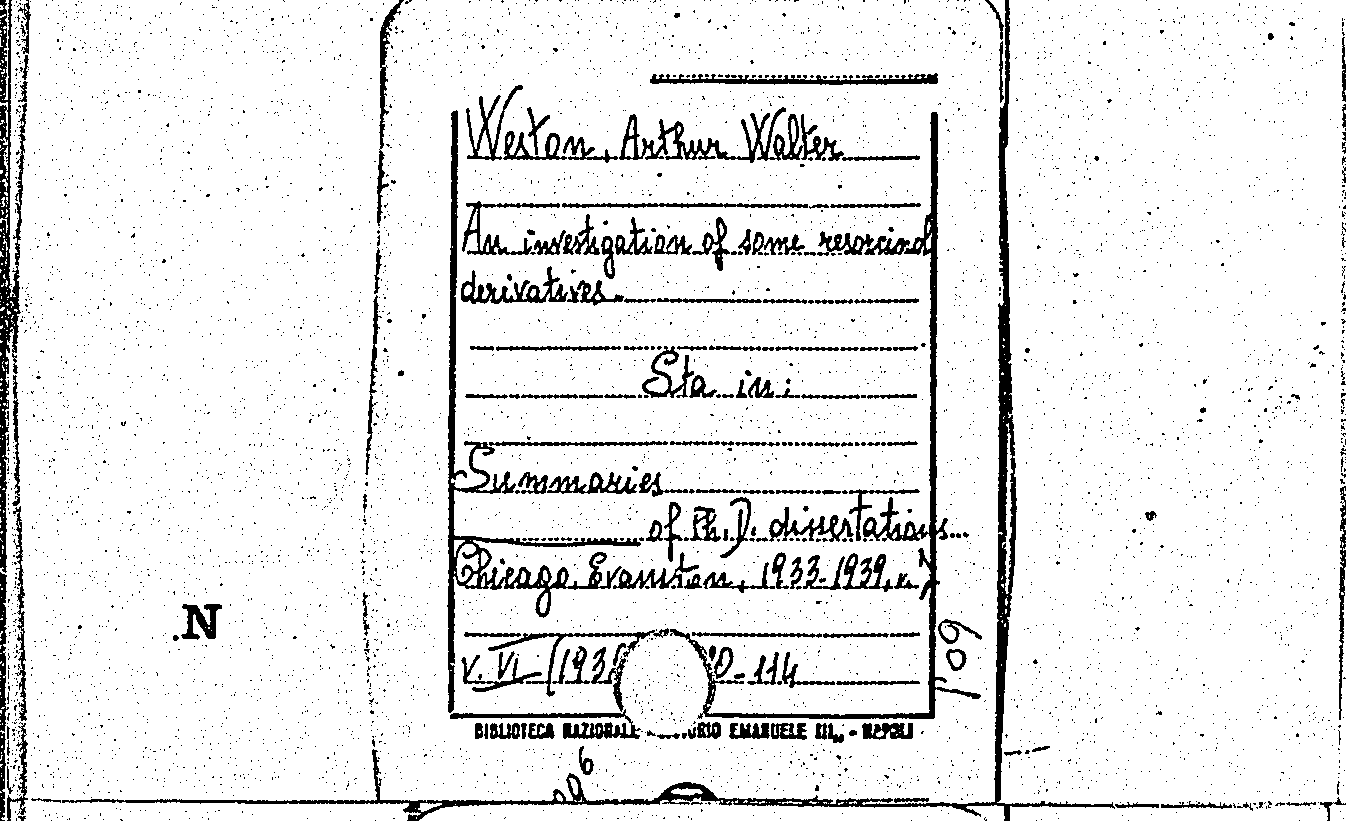 Weston, Arthur Walter
An investigation of some resorcinol
derivatives.
Sta in:
Summaries
of Ph. D. dissertations...
Chicago, Evanston, 1933-1939,
v. VI (193 0-114
N
BIBLIOTECA NAZIONALE EMANUELE III,, - NAPOLI